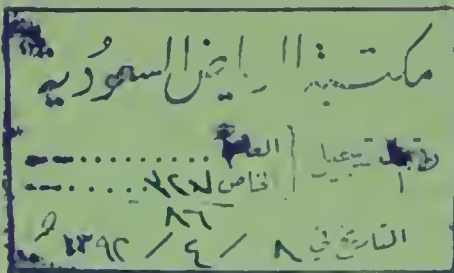 مكتبة الرياض السعودية
رقم تسجيل { العام ..........
الخاص ........
٨٦
التاريخ في ٨ / ٤ / ١٣٩٢ هـ